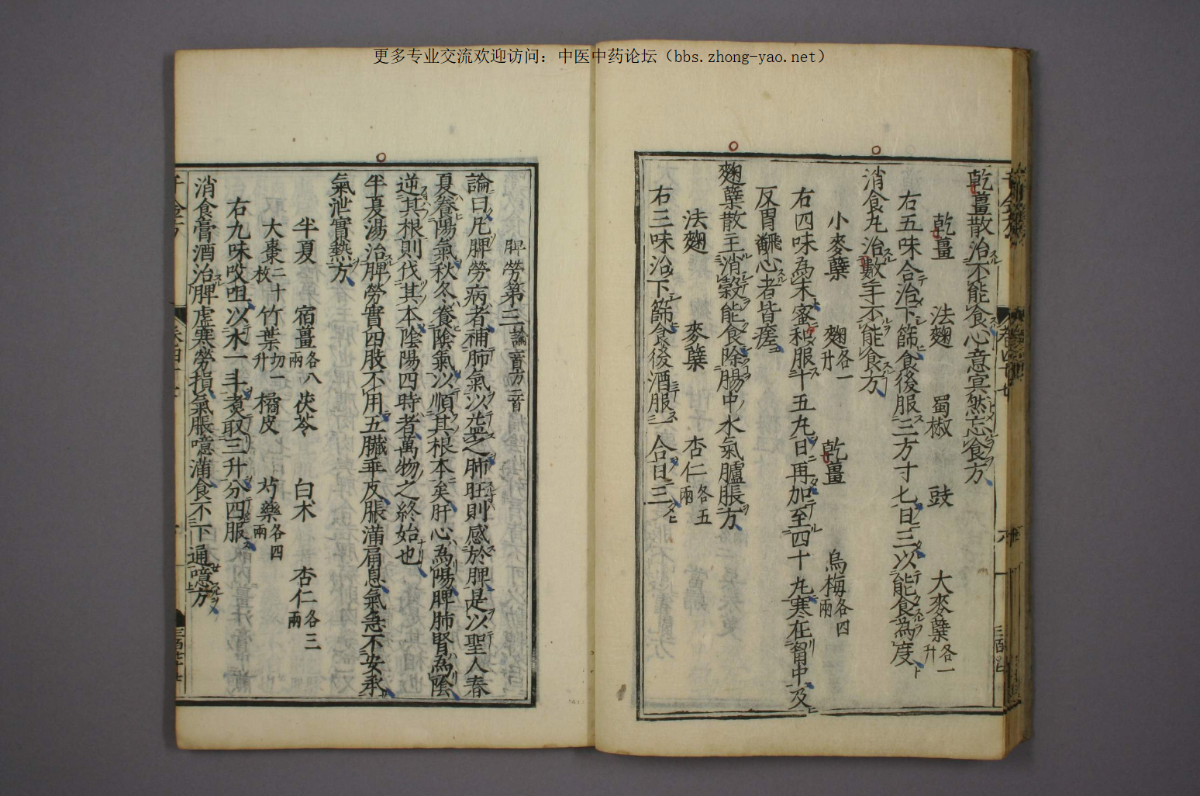 更多专业交流欢迎访问：中医中药论坛（bbs.zhong-yao.net）
乾薑散治不能食心意寞然忘食方
乾薑 法麴 蜀椒 豉 大麥蘗各一升
右五味合治下篩食後服三方寸匕日三以能食為度
消食丸治數手不能食方
小麥蘗 麴各一升 乾薑 烏梅各四兩
右四味為末蜜和服十五丸日再加至四十丸寒在胷中及
反胃飜心者皆瘥
麴蘗散主消穀能食除腸中水氣臚脹方
法麴 麥蘗 杏仁各五兩
右三味治下篩食後酒服一合日三
脾勞第三論一首方二首
論曰凡脾勞病者補肺氣以益之肺旺則感於脾是以聖人春
夏養陽氣秋冬養陰氣以順其根本矣肝心為陽脾肺腎為陰
逆其根則伐其本陰陽四時者萬物之終始也
半夏湯治脾勞實四肢不用五臟乖反脹滿肩息氣急不安承
氣泄實熱方
半夏 宿薑各八兩 茯苓 白朮 杏仁各三兩
大棗二十枚 竹葉切一升 橘皮 芍藥各四兩
右九味㕮咀以水一斗煮取三升分四服
消食膏酒治脾虛寒勞損氣脹噫滿食不下通噫方